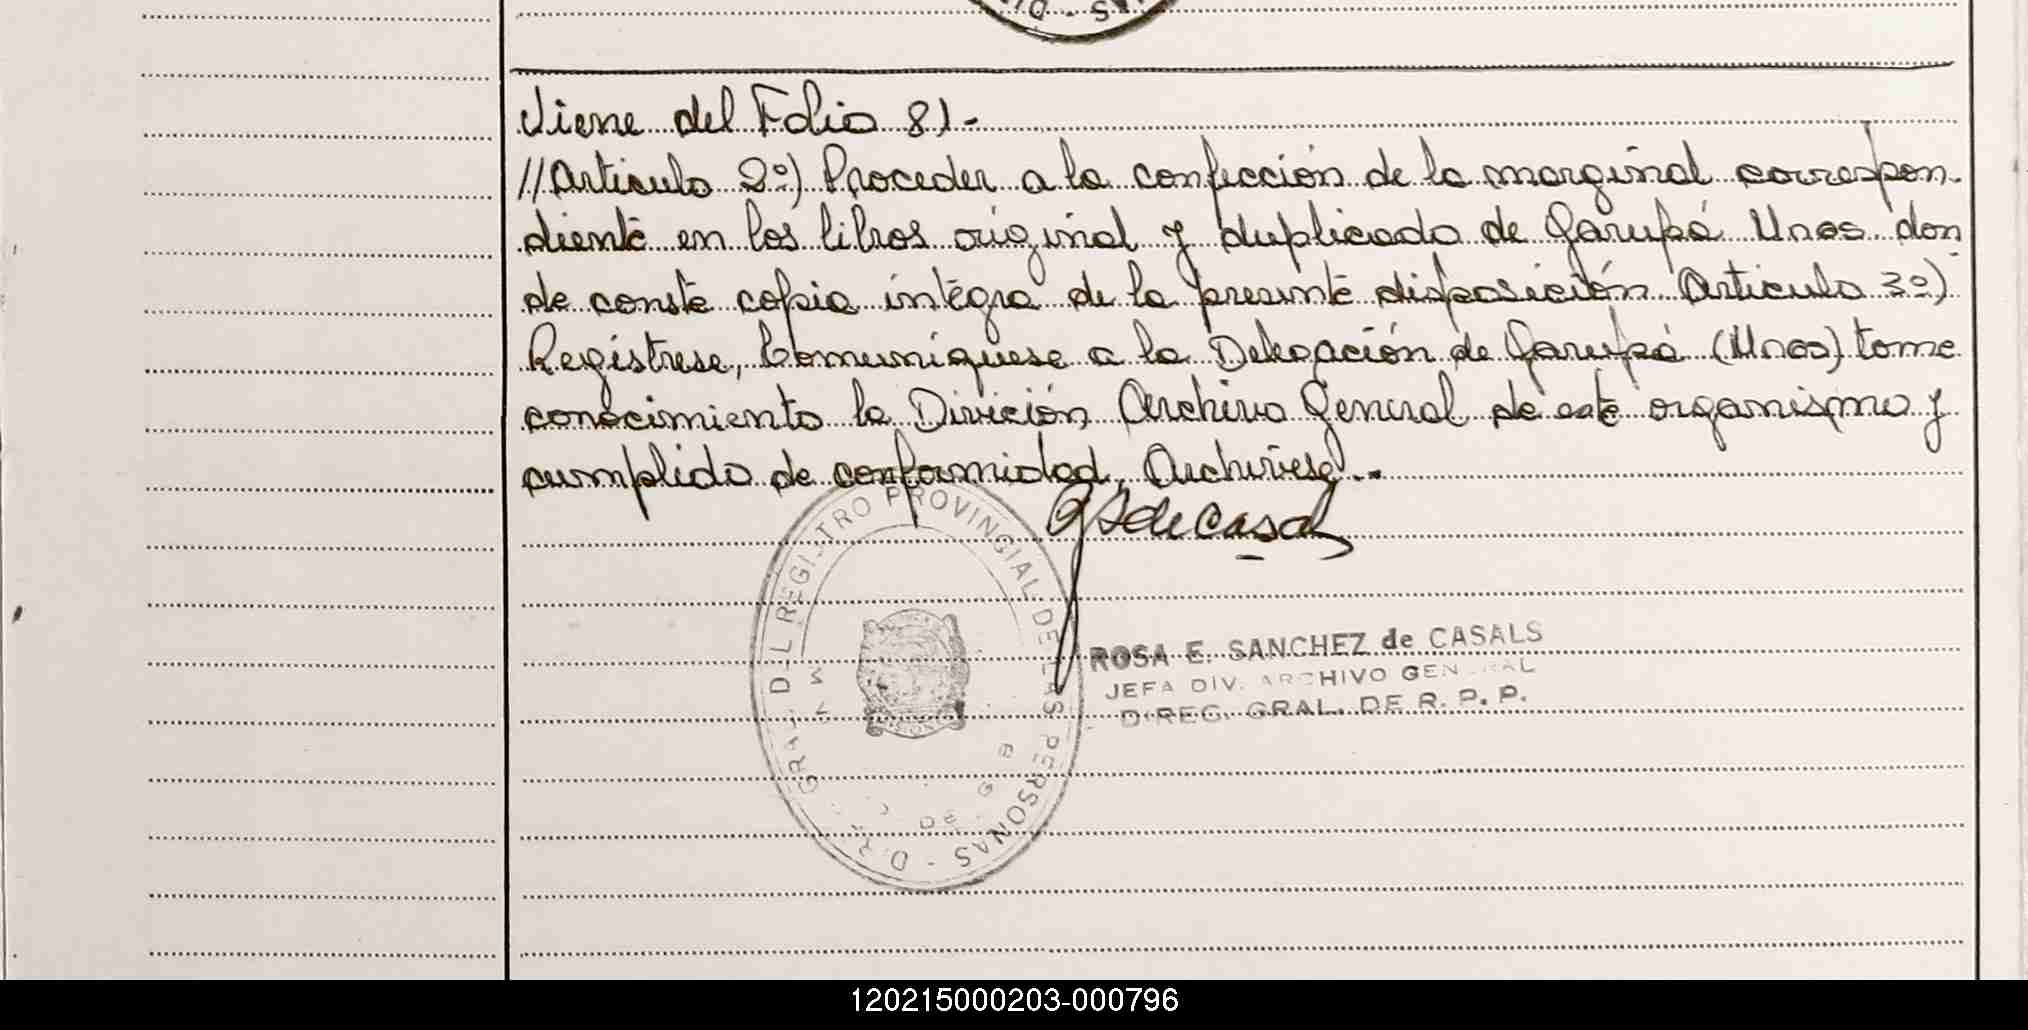 Viene del Folio 81.-
//Articulo 2º) Proceder a la confección de la marginal correspon-
diente en los libros original y duplicado de Garupá Mnes. don
de conste copia integra de la presente disposición. Articulo 3º)
Registrese, Comuniquese a la Delegación de Garupá (Mnes) tome
conocimiento la División Archivo General de este organismo y
cumplido de conformidad, Archivese.-
ROSA E. SANCHEZ de CASALS
JEFA DIV. ARCHIVO GENERAL
DIREC. GRAL. DE R. P. P.
GRAL. DEL REGISTRO PROVINCIAL DE LAS PERSONAS
120215000203-000796